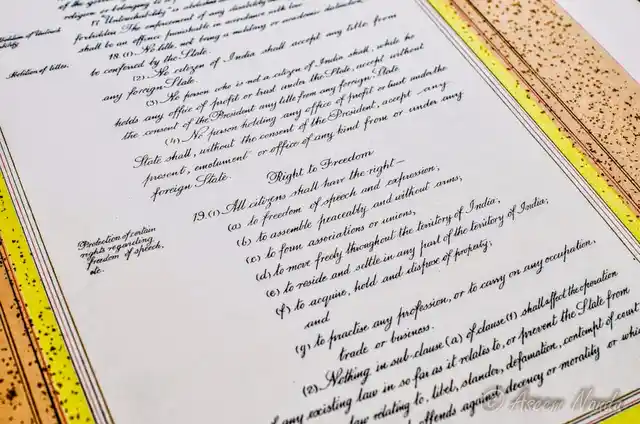 religion
17. "Untouchability" is abolished
Abolition of Untouch-
ability.
forbidden. The enforcement of any disability
shall be an offence punishable in accordance with law.
18. (1) No title, not being a military or academic distinction,
Abolition of titles.
be conferred by the State.
(2) No citizen of India shall accept any title from
any foreign State.
(3) No person who is not a citizen of India shall, while he
holds any office of profit or trust under the State, accept without
the consent of the President any title from any foreign State.
(4) No person holding any office of profit or trust under the
State shall, without the consent of the President, accept any
present, emolument or office of any kind from or under any
foreign State.
Right to Freedom
19. (1) All citizens shall have the right—
Protection of certain
rights regarding
freedom of speech,
etc.
(a) to freedom of speech and expression;
(b) to assemble peaceably and without arms;
(c) to form associations or unions;
(d) to move freely throughout the territory of India;
(e) to reside and settle in any part of the territory of India;
(f) to acquire, hold and dispose of property;
and
(g) to practise any profession, or to carry on any occupation,
trade or business.
(2) Nothing in sub-clause (a) of clause (1) shall affect the operation
of any existing law in so far as it relates to, or prevent the State from
law relating to, libel, slander, defamation, contempt of court
offends against decency or morality or which
© Aseem Nanda